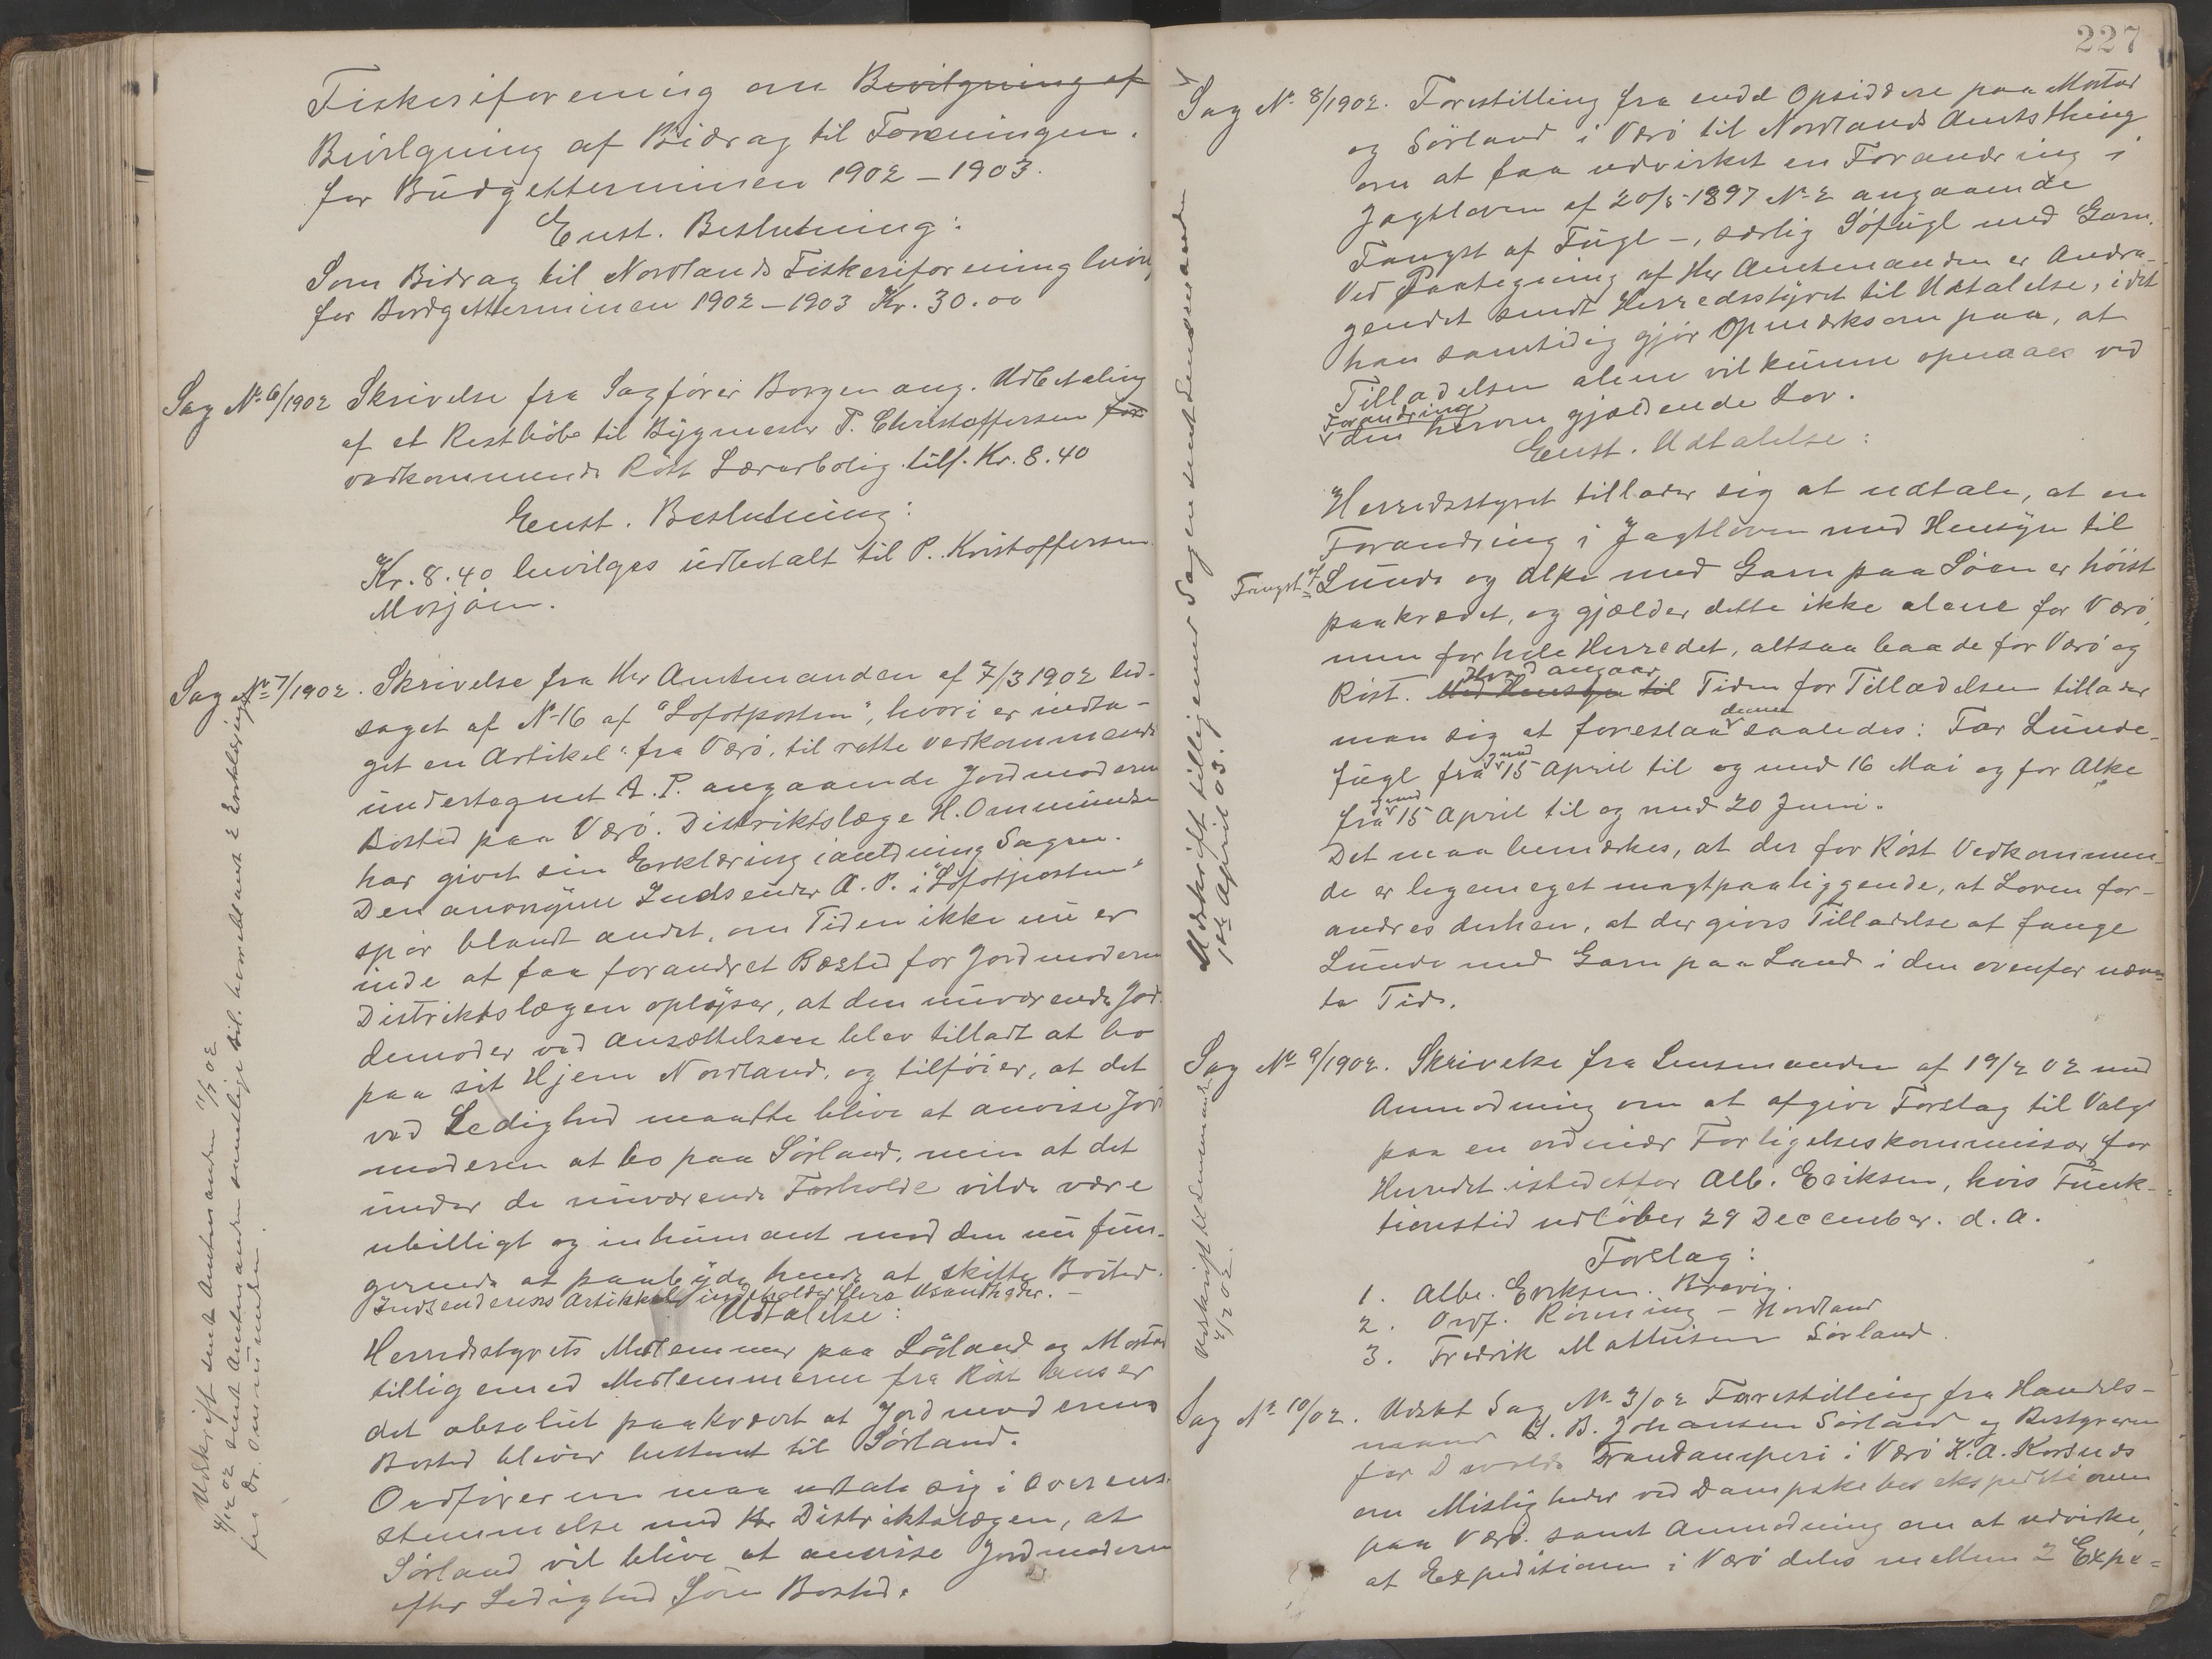 Fiskeriforening om Bevilgning af
Bevilgning af Bidrag til Foreningen.
for Budgetterminen 1902 – 1903.
Enst. Beslutning:
Som Bidrag til Nordlands Fiskeriforening bevilg
for Bordgetterminen 1902 – 1903 Kr. 30.00
Sag No 6/1902 Skrivelse fra Sagfører Borgen ang. Udbetaling
af et Restbeløb til Bygmester P. Christoffersen for
vedkommende Röst Lærerbolig. till. Kr. 8.40
Enst. Beslutning:
Kr. 8.40 bevilges udbetalt til P. Kristoffersen
Mosjøen.
Sag No 7/1902. Skrivelse fra Hr Amtmanden af 7/3 1902 led-
saget af No 16 af "Lofotposten", hvori er indta-
get en Artikel "fra Værö, til rette vedkommende
undertegnet A. P. angaaende Jordmoderen
Bosted paa Værö. Distriktslæge H. Ommundsen
har givet sin Erklæring i anledning Sagen.
Den anonyme Indsender A. P. i "Lofotposten"
spör blandt andet, om Tiden ikke nu er
inde at faa forandret Bosted for Jordmoderen
Distriktslægen oplyser, at den nuværende Jor-
demoder ved Ansættelsen blev tilladt at bo
paa sit Hjem Nordland, og tilföier, at det
ved Ledighed maatte blive at anvise Jord
moderen at bo paa Sörland, men at det
under de nuværende Forholde vilde være
ubilligt og inhumant mod den nu fun-
gerende at paabyde hende at skifte Bosted.
Indsenderens Artikkel indeholder flere Usandheder. –
Udtalelse:
Herredstyrets Medlemmer paa Sörland og Mostad
tilligemed Medlemmerne fra Röst anser
det absolut paakrævet at Jordmoderens
Bosted bliver bestemt til Sörland.
Ordföreren maa udtale sig i Overens-
stemmelse med Hr Distriktslægen, at
Sörland vil blive at anvise Jordmoderen
efter Ledighed som Bosted.
Udskrift sendt Amtmanden 11/3 02
fra Dr. Ommundsen.
227
Sag No 8/1902. Forestilling fra endel Opsiddere paa Mostad
og Sörland i Værö til Nordlands Amtsthing
om at faa udvirket en Forandring i
Jagtloven af 20/5 1897 No 2 angaaende
Fangst af Fugl –, særlig Söfugl med Garn.
Ved Paategning af Her Amtmanden er Andra-
gendet sendt Herredsstyret til Udtalelse, idet
han samtidig gjør opmærksom paa, at
Tilladelsen alene vil kunne opnaaes ved
Forandring
den herom gjældende Lov.
Enst. Udtalelse:
Herredsstyret tillader sig at udtale, at en
Forandring i Jagtloven med Hensyn til
Fangst af Lunde og Alke med Garn paa Söen er höist
paakrævet, og gjælder dette ikke alene for Værö,
men for hele Herredet, altsaa baade for Værö og
Hvad angaar
Röst. Med Hensyn til Tiden for Tilladelsen tillader
denne
man sig at foreslaa saaledes: For Lunde-
og med
fugl fra 15 April til og med 16 Mai og for Alke
og med
fra 15 April til og med 20 Juni.
Det maa bemærkes, at der for Röst Vedkommen-
de er ligemeget magtpaaliggende, at Loven for-
andres derhen, at der gives Tilladelse at fange
Lunde med Garn paa Land i den ovenfor nævn-
te Tid.
Udskrift tilligemed Sagen sendt Lensmanden
1ste April 03.
Sag No 9/1902. Skrivelse fra Lensmanden af 19/2 02 med
Anmodning om at afgive Forslag til Valg
paa en ordinær Forligelseskommissær for
Herredet istedetfor Alb. Eriksen, hvis Funk-
tionstid udløber 29 December. d. A.
Forslag:
1. Albr. Eriksen. Brevig.
2. Ordf. Rönning – Nordland
3. Fredrik Mathisen Sörland.
Udskrift til Lensmanden
4/2 02.
Sag No 10/02. Udsat Sag No 3/02 Forestilling fra Handels-
mand J. B. Johansen Sörland og Bestyreren
for Devolds Trandamperi i Værö K. A. Korsnes
om Misligheder ved Dampskibsekspeditionen
paa Værö. samt Anmodning om at udvirke,
at Expeditionen i Værö deles mellem 2 Expe-